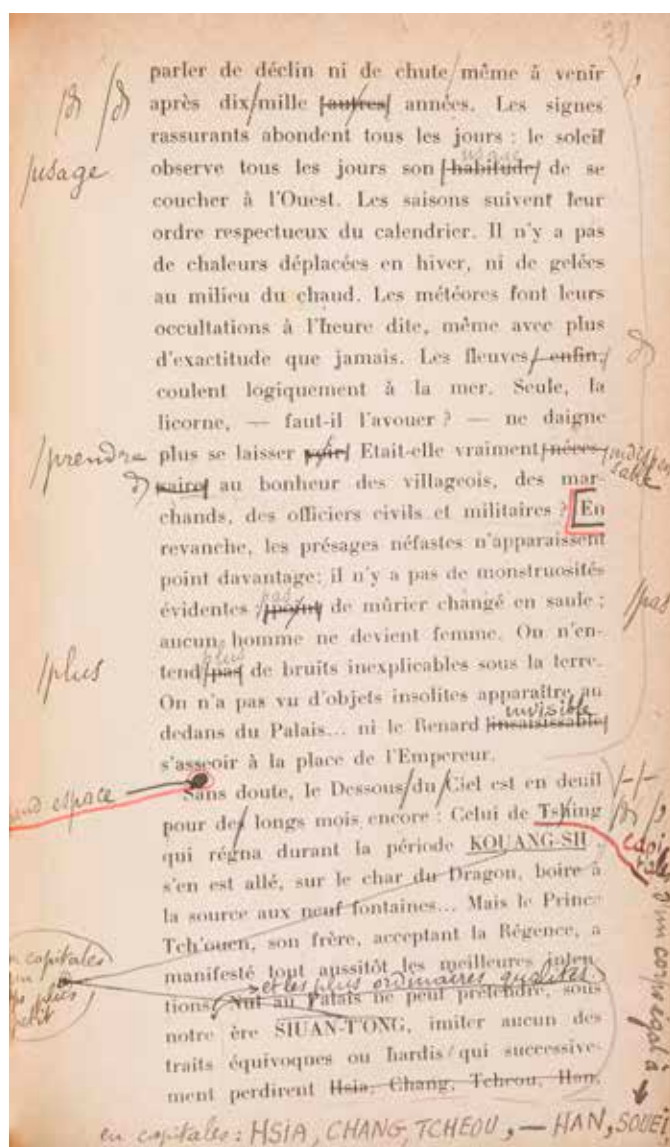 39
parler de déclin ni de chute/même à venir /,
après dix/mille [autres] années. Les signes
rassurants abondent tous les jours : le soleil
/usage observe tous les jours son [habitude] usage de se
coucher à l'Ouest. Les saisons suivent leur
ordre respectueux du calendrier. Il n'y a pas
de chaleurs déplacées en hiver, ni de gelées
au milieu du chaud. Les météores font leurs
occultations à l'heure dite, même avec plus
d'exactitude que jamais. Les fleuves/ enfin,/
coulent logiquement à la mer. Seule, la
licorne, — faut-il l'avouer ? — ne daigne
/prendre plus se laisser voir/ Etait-elle vraiment/néces-/ indispen
saire/ au bonheur des villageois, des mar- sable
chands, des officiers civils et militaires ? [En
revanche, les présages néfastes n'apparaissent
point davantage: il n'y a pas de monstruosités
évidentes :/point/ pas de mûrier changé en saule ; /pas
aucun homme ne devient femme. On n'en-
/plus tend/pas/ plus de bruits inexplicables sous la terre.
On n'a pas vu d'objets insolites apparaître au
dedans du Palais... ni le Renard [insaisissable] invisible
s'asseoir à la place de l'Empereur.
and espace Sans doute, le Dessous/du/Ciel est en deuil /-/-
pour des longs mois encore : Celui de Tshing
qui régna durant la période KOUANG-SU
s'en est allé, sur le char du Dragon, boire à
la source aux neuf fontaines... Mais le Prince
Tch'ouen, son frère, acceptant la Régence, a
capitales manifesté tout aussitôt les meilleures inten-
et les plus ordinaires qualités
plus tions. Nul au Palais ne peut prétendre, sous
petit notre ère SIUAN-T'ONG, imiter aucun des
traits équivoques ou hardis/qui successive-
ment perdirent Hsia, Chang, Tcheou, Han,
en capitales : HSIA, CHANG, TCHEOU, — HAN, SOUEI